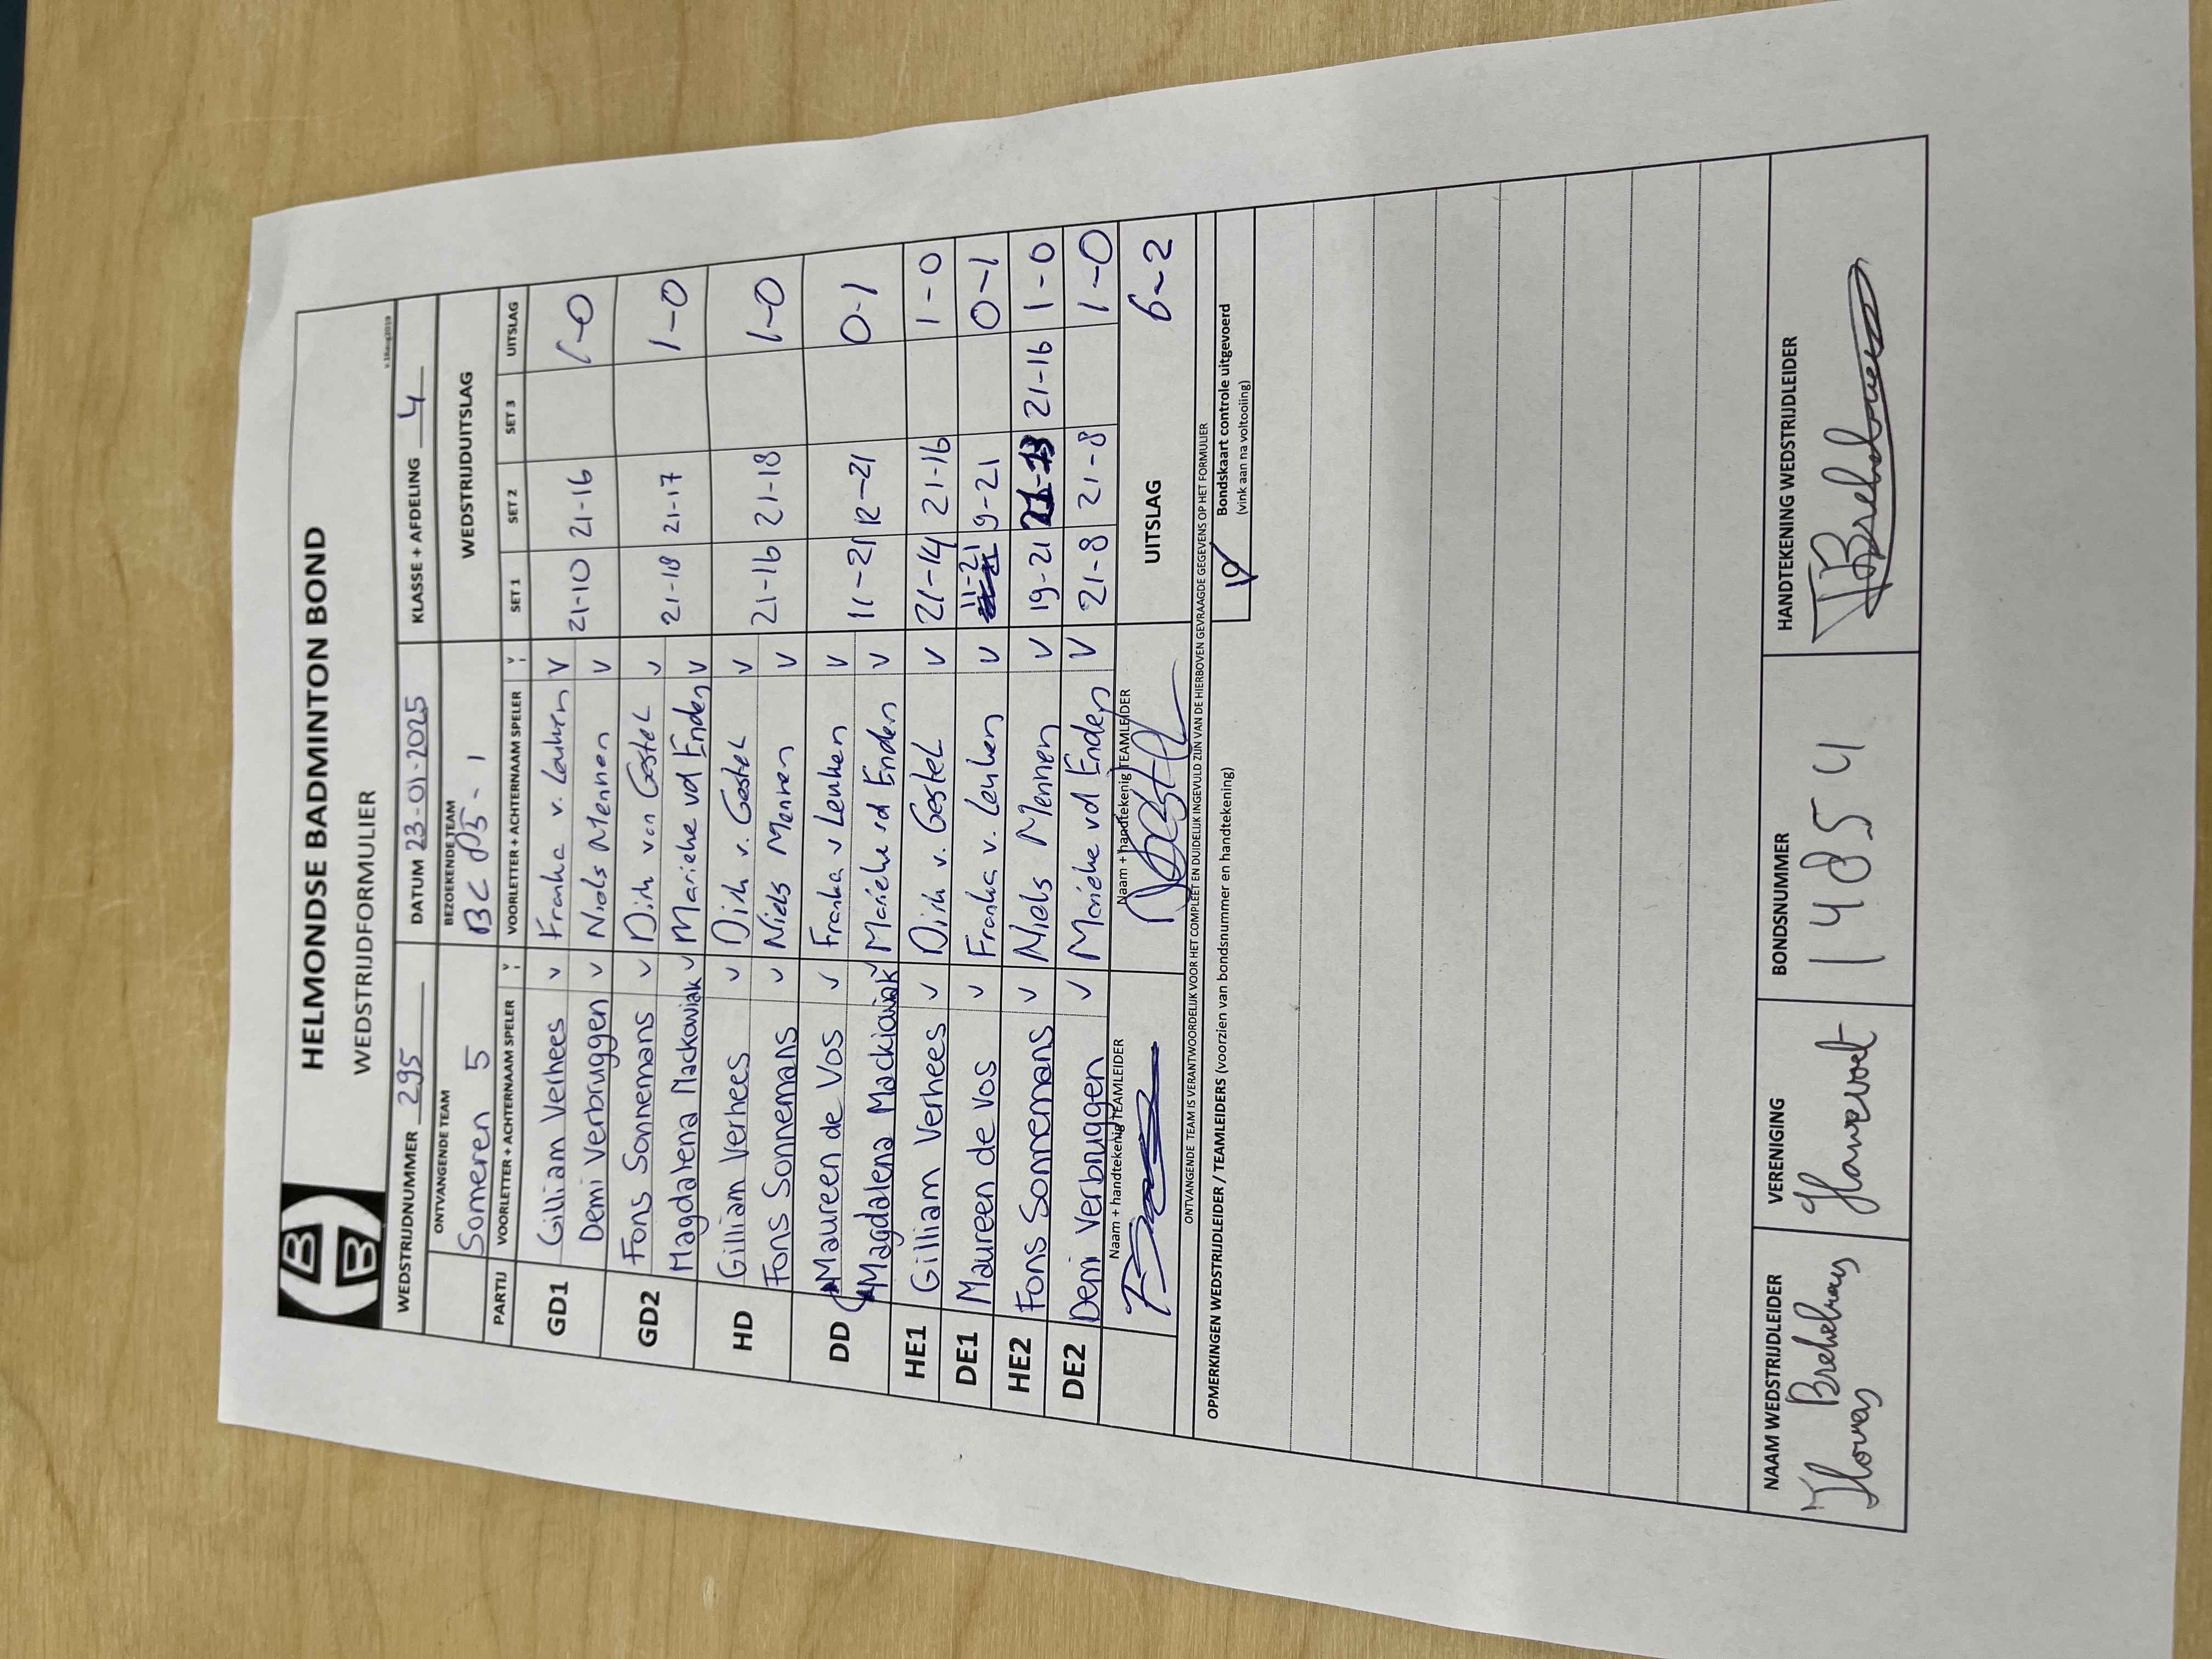 HELMONDSE BADMINTON BOND
WEDSTRIJDFORMULIER
v.18aug2019
WEDSTRIJDNUMMER 295 DATUM 23-01-2025 KLASSE + AFDELING 4
ONTVANGENDE TEAM BEZOEKENDE TEAM WEDSTRIJDUITSLAG
Someren 5 BC 85 - 1
PARTIJ VOORLETTER + ACHTERNAAM SPELER V VOORLETTER + ACHTERNAAM SPELER V SET 1 SET 2 SET 3 UITSLAG
GD1 Gilliam Verhees v Franka v. Leuken v 21-10 21-16 1-0
Demi Verbruggen v Niels Mennen v
GD2 Fons Sonnemans v Dirk van Gestel v 21-18 21-17 1-0
Magdalena Mackowiak v Marieke vd Enden v
HD Gilliam Verhees v Dirk v. Gestel v 21-16 21-18 1-0
Fons Sonnemans v Niels Mennen v
DD Maureen de Vos v Franka v Leuken v 11-21 12-21 0-1
Magdalena Mackiowiak v Marieke vd Enden v
HE1 Gilliam Verhees v Dirk v. Gestel v 21-14 21-16 1-0
DE1 Maureen de Vos v Franka v. Leuken v 11-21 9-21 0-1
HE2 Fons Sonnemans v Niels Mennen v 19-21 21-16 1-0
DE2 Demi Verbruggen v Marieke vd Enden v 21-8 21-8 1-0
Naam + handtekenig TEAMLEIDER Naam + handtekenig TEAMLEIDER UITSLAG 6-2
ONTVANGENDE TEAM IS VERANTWOORDELIJK VOOR HET COMPLEET EN DUIDELIJK INGEVULD ZIJN VAN DE HIERBOVEN GEVRAAGDE GEGEVENS OP HET FORMULIER
OPMERKINGEN WEDSTRIJDLEIDER / TEAMLEIDERS (voorzien van bondsnummer en handtekening) Bondskaart controle uitgevoerd
(vink aan na voltooiing)
NAAM WEDSTRIJDLEIDER VERENIGING BONDSNUMMER HANDTEKENING WEDSTRIJDLEIDER
14854